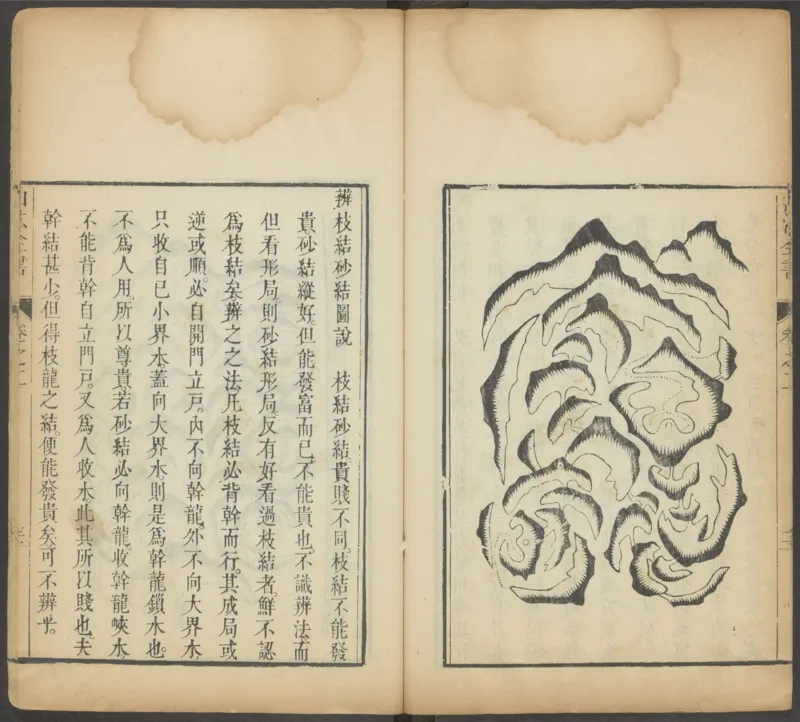 辨枝結砂結圖說　枝結砂結貴賤不同。枝結不能發
貴砂結縱好。但能發富而已。不能貴也。不識辨法。而
但看形局。則砂結形局。反有好看過枝結者。鮮不認
爲枝結矣。辨之之法。凡枝結必背幹而行。其成局或
逆或順。必自開門立戶。內不向幹龍。外不向大界水。
只收自已小界水。蓋向大界水。則是爲幹龍鎖水也。
不爲人用。所以尊貴。若砂結必向幹龍。收幹龍峽水。
不能背幹自立門戶。又爲人收水。此其所以賤也。夫
幹結甚少。但得枝龍之結。便能發貴矣。可不辨乎。
山法全書